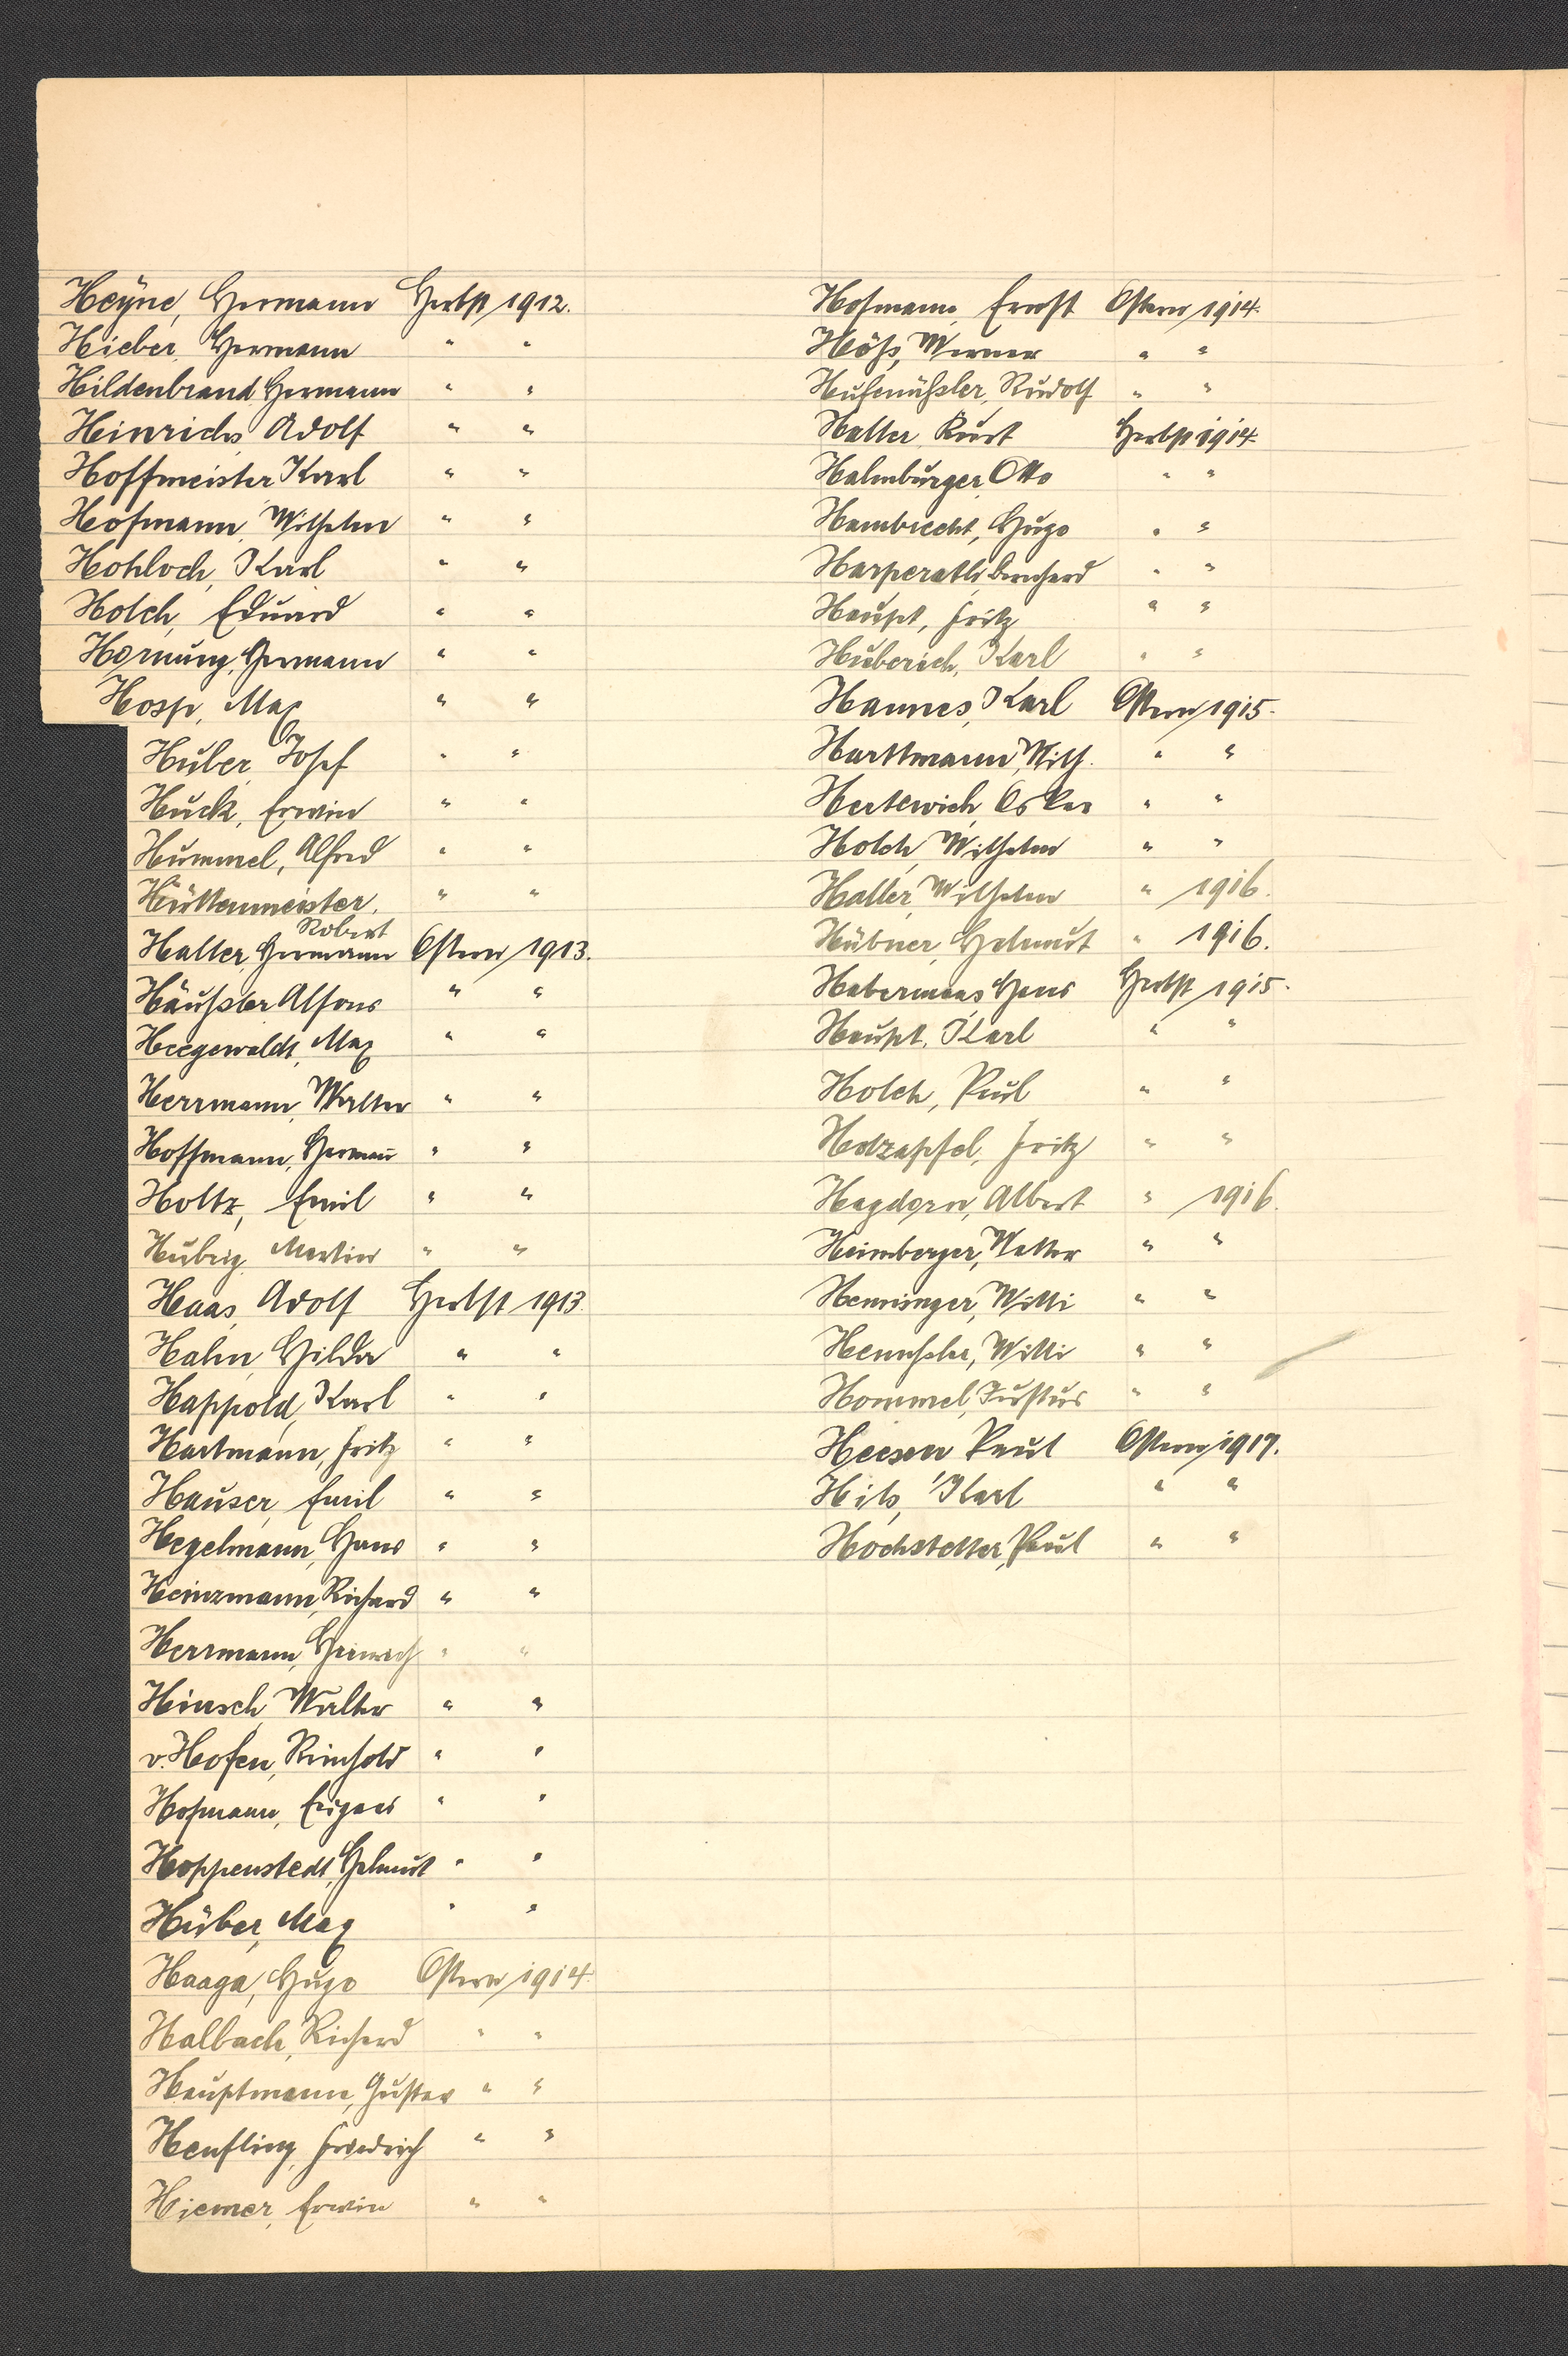 Heyne, Hermann Herbst 1912.
Hieber, Hermann " "
Hildenbrand, Hermann " "
Heinrichs, Adolf " "
Hoffmeister, Karl " "
Hofmann, Wilhelm " "
Hohloch, Karl " "
Holch, Eduard " "
Hornung, Hermann " "
Hosp, Max " "
Huber, Josef " "
Huck, Erwin " "
Hummel, Alfred " "
Hüttenmeister, " "
Robert
Haller, Hermann Ostern 1913.
Häussler Alfons " "
Heegewaldt, Max " "
Herrmann, Walter " "
Hoffmann, Herman̄ " "
Holtz, Emil " "
Hubrig, Martin " "
Haas, Adolf Herbst 1913.
Hahn, Hilda " "
Happold, Karl " "
Hartmann, Fritz " "
Hauser, Emil " "
Hegelmann, Hans " "
Heinzmann, Richard " "
Herrmann, Heinrich " "
Hinsch, Walter " "
v. Hofen, Reinhold " "
Hofmann, Eugen " "
Hoppenstedt, Helmut " "
Huber, Max " "
Haaga, Hugo Ostern 1914.
Halbach, Richard " "
Hauptmann, Gustav " "
Henfling, Friedrich " "
Hiemer, Erwin " "
Hofmann, Ernst Ostern 1914.
Höß, Werner " "
Hufnüßler, Rudolf " "
Haller, Kurt Herbst 1914.
Halmburger, Otto " "
Hambrecht, Hugo " "
Harperath, Bernhard " "
Haupt, Fritz " "
Huberich, Karl " "
Hannes, Karl Ostern 1915.
Harttmann, Wilh. " "
Herterich, Oskar " "
Holch, Wilhelm " "
Haller, Wilhelm " 1916.
Hübner, Helmut " 1916.
Habermaas Hans Herbst 1915.
Haupt, Karl " "
Holch, Paul " "
Holzapfel, Fritz " "
Hagdorn, Albert " 1916.
Heimberger, Walter " "
Henninger, Willi " "
Willi " "
Hommel, Justus " "
Heesen Paul Ostern 1917.
Hils, Karl " "
Hochstetter, Paul " "